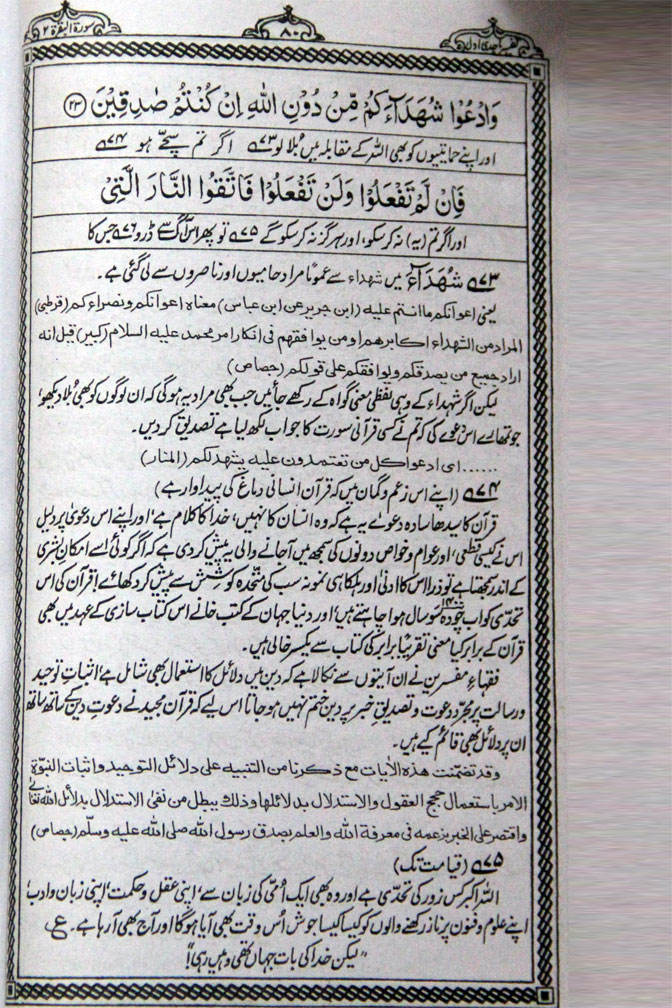 تفسیر ماجدی اول
۸۰
سورۃ البقرۃ ۲
وَادْعُوْا شُهَدَآءَكُمْ مِّنْ دُوْنِ اللّٰهِ اِنْ كُنْتُمْ صٰدِقِيْنَ ﴿۲۳﴾
اور اپنے حمایتیوں کو بھی اللہ کے مقابلہ میں بُلا لو ۷۳ اگر تم سچّے ہو ۷۴
فَاِنْ لَّمْ تَفْعَلُوْا وَلَنْ تَفْعَلُوْا فَاتَّقُوا النَّارَ الَّتِيْ
اور اگر تم (یہ) نہ کر سکو، اور ہرگز نہ کر سکو گے ۷۵ تو پھر اس آگ سے ڈرو ۷۶ جس کا
۷۳ شُھَدَآءَ میں شہداء سے عموماً مراد حامیوں اور ناصروں سے لی گئی ہے۔
یعنی اعوانکم ما انتم علیه (ابن جریر عن ابن عباس) معناه اعوانکم ونصراء کم (قرطبی)
المراد من الشهداء اکابرهم او من یوافقهم فی انکار امر محمد علیه السلام (کبیر) قیل انه
اراد جمیع من یصدقکم ویوافقکم علی قولکم (جصاص)
لیکن اگر شہداء کے وہی لفظی معنی گواہ کے رکھے جائیں جب بھی مراد یہ ہوگی کہ ان لوگوں کو بھی بُلا دیکھو،
جو تمھارے اس دعوے کی کہ تم نے کسی قرآنی سورت کا جواب لکھ لیا ہے تصدیق کر دیں۔
......ای ادعوا کل من تعتمدون علیه یشهد لکم (المنار)
۷۴ (اپنے اس زعم و گمان میں کہ قرآن انسانی دماغ کی پیداوار ہے)
قرآن کا سیدھا سادہ دعوےٰ یہ ہے کہ وہ انسان کا نہیں، خدا کا کلام ہے، اور اپنے اس دعویٰ پر دلیل
اس نے کیسی قطعی، اور عوام و خواص دونوں کی سمجھ میں آ جانے والی یہ پیش کر دی ہے کہ اگر کوئی اسے امکانِ بشری
کے اندر سمجھتا ہے تو ذرا اس کا ادنیٰ اور ہلکا ہی نمونہ سب کی متحدہ کوشش سے پیش کر دکھائے! قرآن کی اس
تحدّی کو اب چودہ ۱۴۰۰ سو سال ہوا چاہتے ہیں، اور دنیا جہان کے کتب خانے اس کتاب سازی کے عہد میں بھی
قرآن کے برابر کیا معنی تقریباً برابر کی کتاب سے یکسر خالی ہیں۔
فقہاءِ مفسرین نے ان آیتوں سے نکالا ہے کہ دین میں دلائل کا استعمال بھی شامل ہے، اثباتِ توحید
و رسالت پر مجرّد دعوت و تصدیقِ خبر پر دین ختم نہیں ہو جاتا اس لیے کہ قرآن مجید نے دعوتِ دین کے ساتھ ساتھ
ان پر دلائل بھی قائم کیے ہیں۔
وقد تضمنت هذه الآیات مع ذکرنا من التنبیه علی دلائل التوحید واثبات النبوّة
الامر باستعمال حجج العقول والاستدلال بدلائلها وذلك یبطل من نفیٰ الاستدلال بدلائل اللّٰه تعالیٰ
واقتصر علی الخبر بزعمه فی معرفة اللّٰه والعلم بصدق رسول اللّٰه صلی اللّٰه علیه وسلّم (جصاص)
۷۵ (قیامت تک)
اللہ اکبر کس زور کی تحدّی ہے اور وہ بھی ایک اُمّی کی زبان سے، اپنی عقل و حکمت، اپنی زبان و ادب،
اپنے علوم و فنون پر ناز رکھنے والوں کو کیسا کیسا جوش اُس وقت بھی آیا ہوگا اور آج بھی آ رہا ہے۔ ع
”لیکن خدا کی بات جہاں تھی وہیں رہی!“